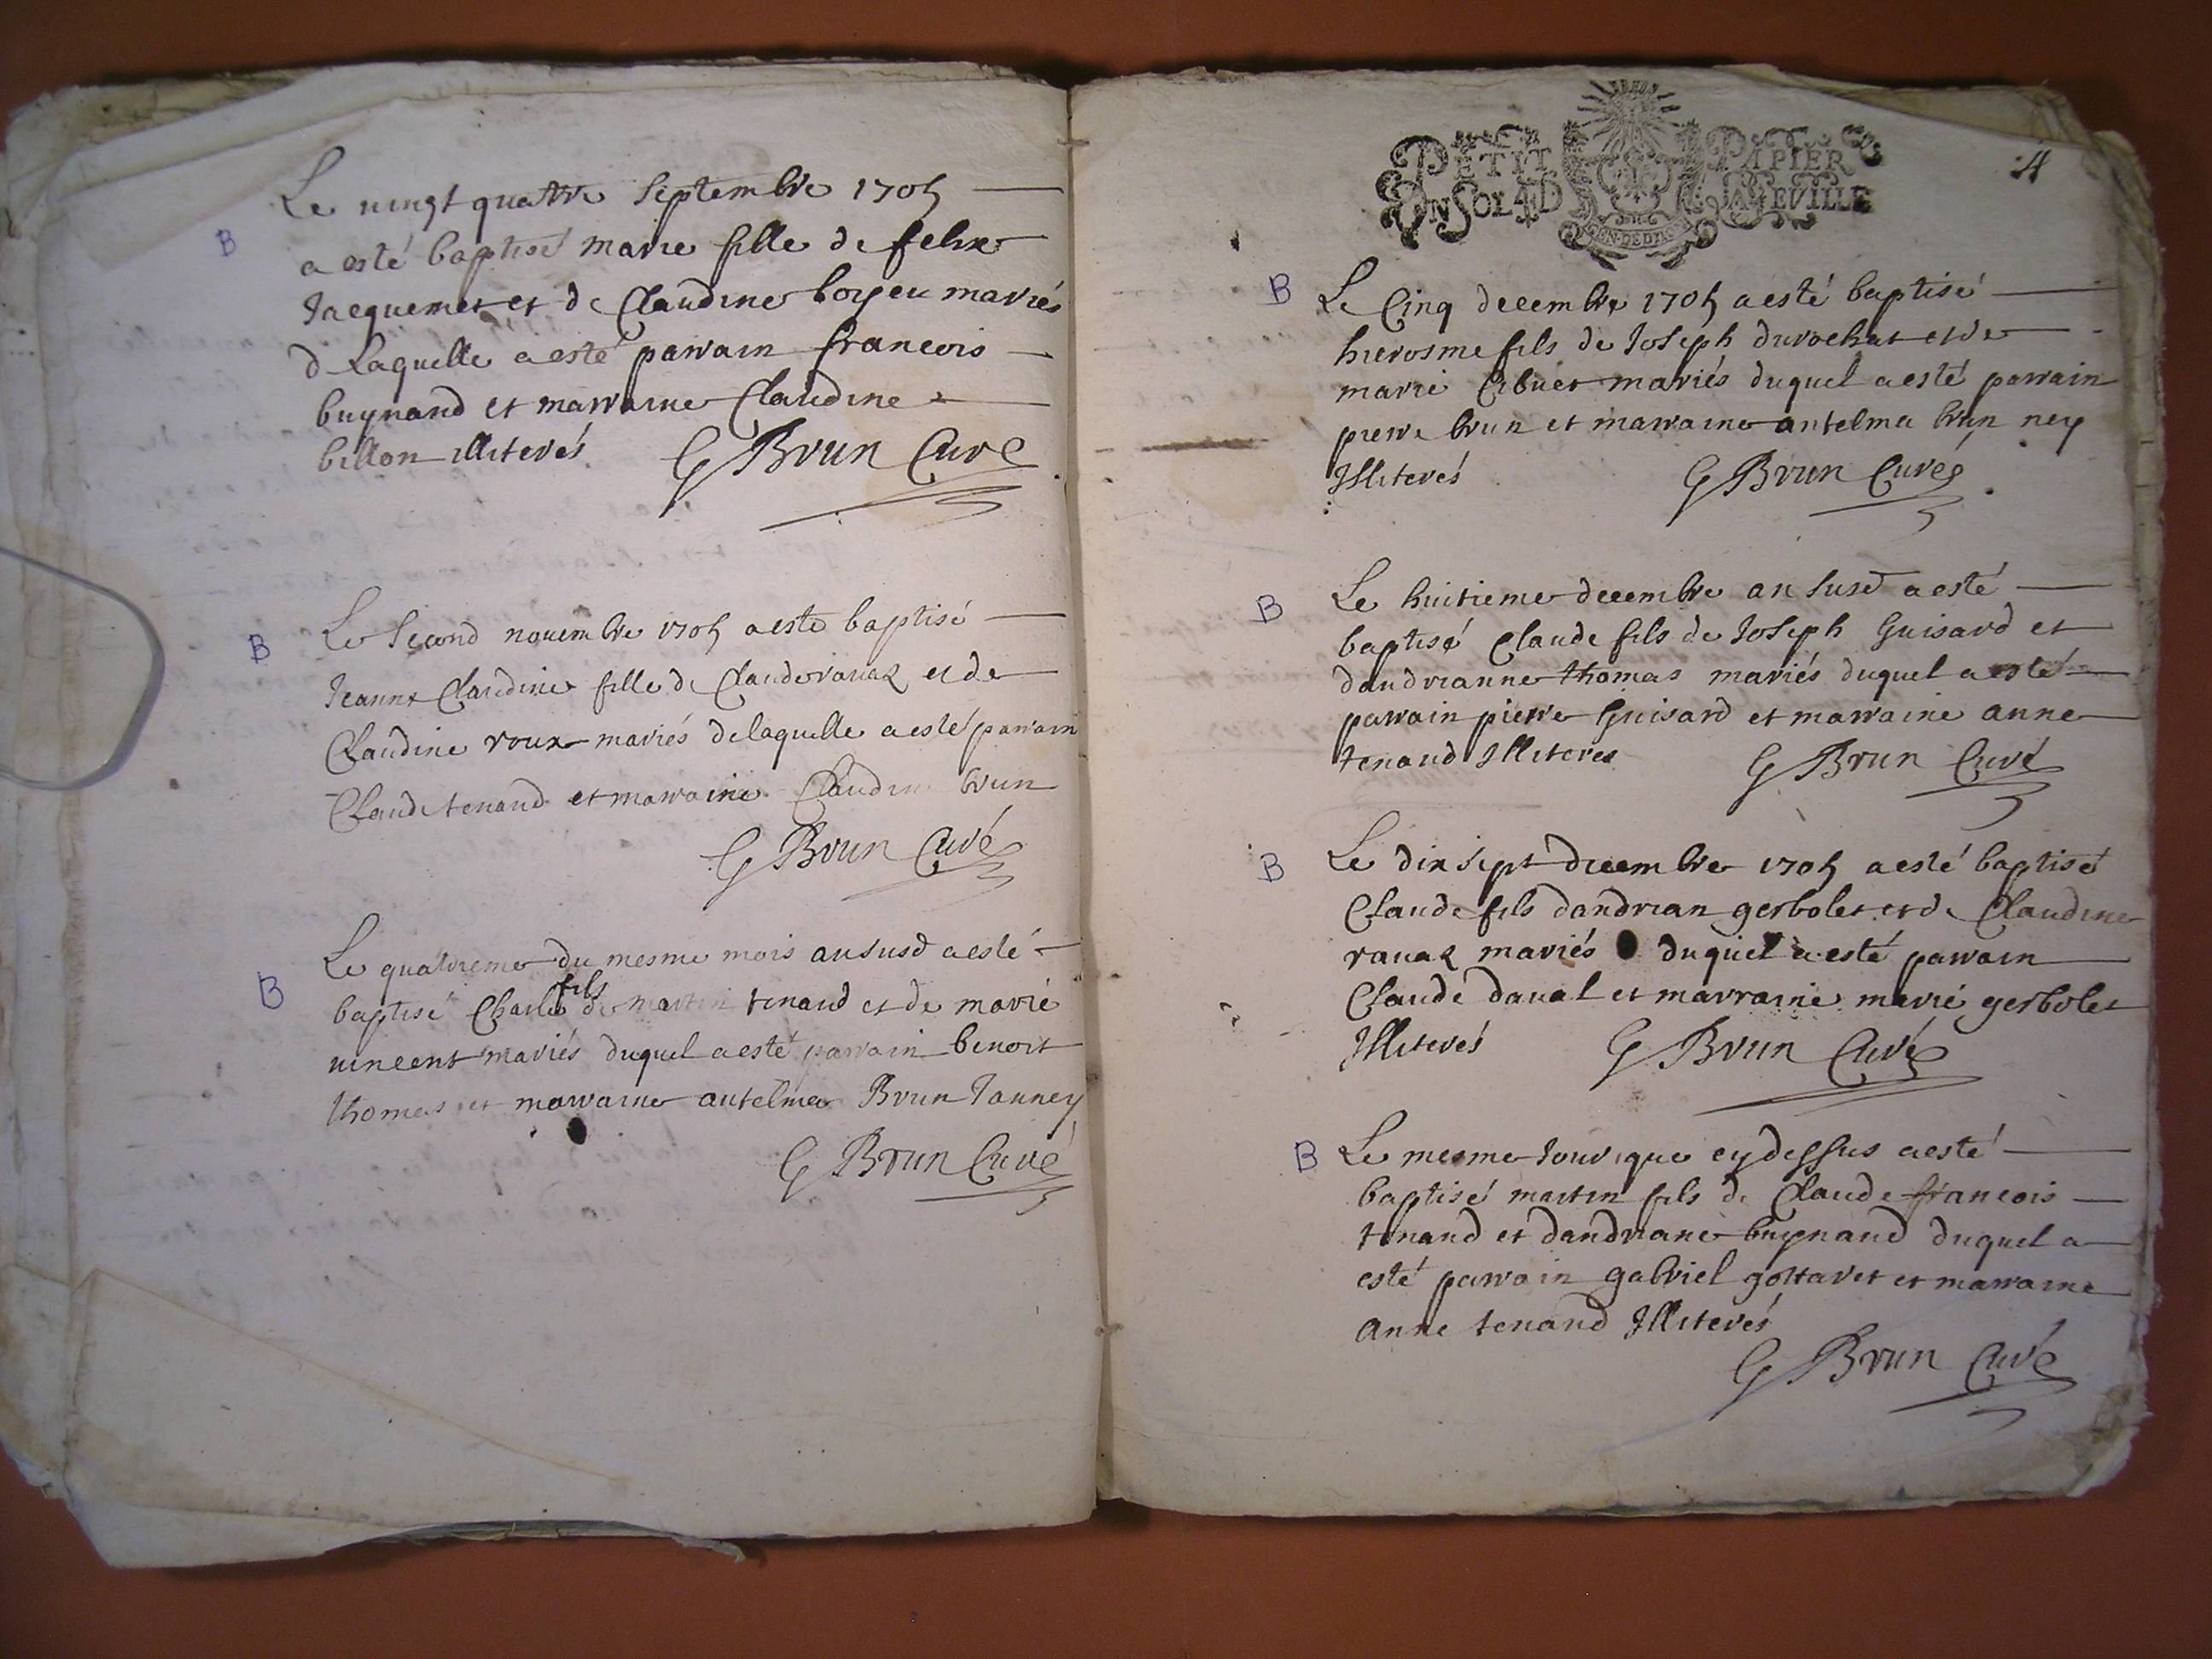 Le uingt quatre septembre 1705
B
a esté baptisé marie fille de felix
Jacquemet et de Claudine boyeu mariés
d laquelle a esté parrain francois
buynand et marraine Claudine
billon illiterés G Brun Curé
B
Le second nouembre 1705 a esté baptisé
Jeanne Claudine fille de Claude rauaz et de
Claudine roux mariés de laquelle a esté parrain
Claude tenand et marraine Claudine brun
G Brun Curé
B
Le quatrieme du mesme mois an susd a esté
baptisé Charle fils de martin tenand et de marie
uincent mariés duquel a esté parrain benoit
thomas et marraine antelma Brun Janney
G Brun Curé
PETIT PAPIER
UN SOL 4 D LA FEUILLE
GEN. DE DIJON
4
B
Le Cinq decembre 1705 a esté baptisé
hierosme fils de Joseph durochat et de
marie Cibuet mariés duquel a esté parrain
pierre brun et marraine antelma brun ney
Illiterés G Brun Curé
B
Le huitieme decembre an susd a esté
baptisé Claude fils de Joseph Guisard et
dandrianne thomas mariés duquel a esté
parrain pierre Guisard et marraine anne
tenand Illiteres G Brun Curé
B
Le dix sept decembre 1705 a esté baptisé
Claude fils dandrian gerbolet et de Claudine
rauaz mariés duquel a esté parrain
Claude daual et marraine marie gerbolet
Illiterés G Brun Curé
B
Le mesme Jour que cy dessus a esté
baptisé martin fils de Claude francois
tenand et dandriane buynand duquel a
esté parrain gabriel gottaret et marraine
anne tenand Illiterés
G Brun Curé